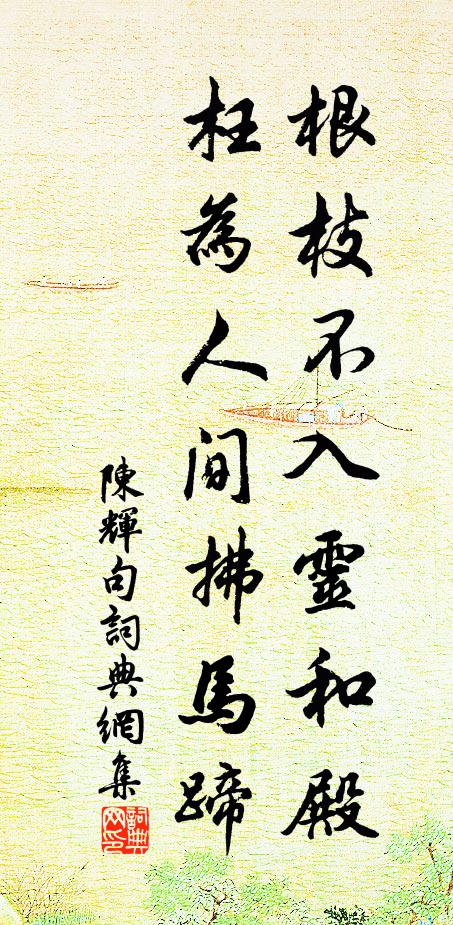 根枝不入靈和殿
枉為人間拂馬蹄
陳輝句詞典網集
詞典
网印